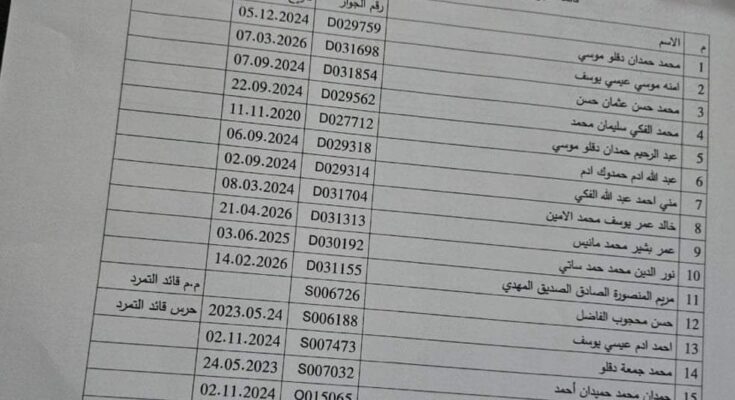 م الاسم رقم الجواز
1 محمد حمدان دقلو موسي D029759 05.12.2024
2 امنه موسي عيسي يوسف D031698 07.03.2026
3 محمد حسن عثمان حسن D031854 07.09.2024
4 محمد الفكي سليمان محمد D029562 22.09.2024
5 عبد الرحيم حمدان دقلو موسي D027712 11.11.2020
6 عبد الله ادم حمدوك ادم D029318 06.09.2024
7 مني احمد عبد الله الفكي D029314 02.09.2024
8 خالد عمر يوسف محمد الامين D031704 08.03.2024
9 عمر بشير محمد مانيس D031313 21.04.2026
10 نور الدين محمد حمد ساتي D030192 03.06.2025
11 مريم المنصورة الصادق الصديق المهدي D031155 14.02.2026
12 حسن محجوب الفاضل S006726 م.م قائد التمرد
13 احمد ادم عيسي يوسف S006188 2023.05.24 حرس قائد التمرد
14 محمد جمعة دقلو S007473 02.11.2024
15 حمدان محمد حميدان أحمد S007032 24.05.2023
O015065 02.11.2024